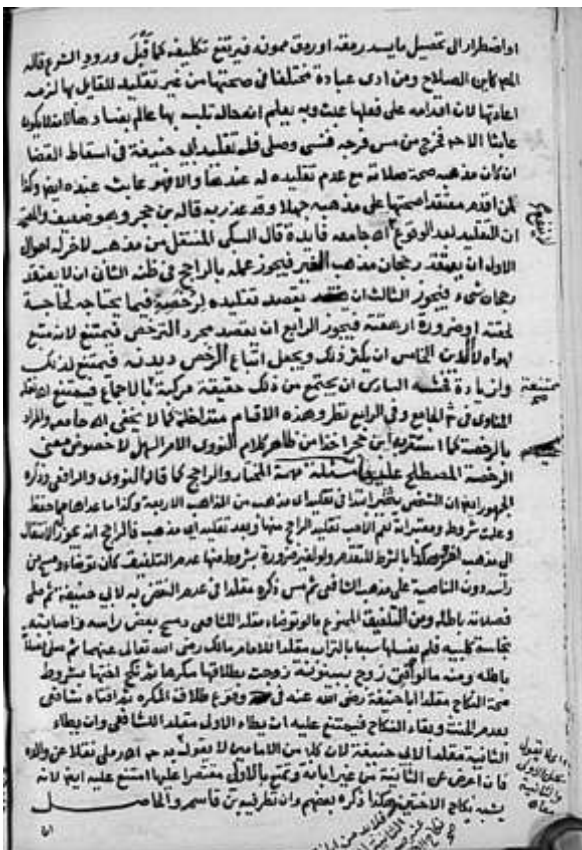 او اضطرار الى تحصيل ما يسد رمقه او رمق ممونه فيرتفع تكليفه كما قبل ورود الشرع قاله
كابن الصلاح ومن ادى عبادة مختلفا في صحتها من غير تقليد للقايل بها لزمه
اعادتها لان اقدامه على فعلها عبث وبه يعلم انه حال تلبسه بها عالم بفسادها اذ لا يكون
عابثا الا ح فخرج من مس فرجه فنسي وصلى فله تقليد ابي حنيفة في اسقاط القضا
ان كان مذهبه صحة صلاته مع عدم تقليده له عندها والا فهو عابث عنده ايضا وكذا
لمن اقدم معتقدا صحتها على مذهبه جهلا وقد عذر به قاله بن حجر
ان التقليد بعد الوقوع جامعه فايدة قال السبكي المنتقل من مذهب لاخر له احوال
الاول ان يعتقد رجحان مذهب الغير فيجوز عمله بالراجح في ظنه الثاني ان لا يعتقد
رجحان شيء فيجوز الثالث ان يقصد تقليده لرخصة فيما يحتاجه لحاجة
لحقته او ضرورة ارهقته فيجوز الرابع ان يقصد مجرد الترخص فيمتنع لانه متبع
لهواه لا للدين الخامس ان يكثر ذلك ويجعل اتباع الرخص ديدنه فيمتنع لذلك
وازيادة فحشه السادس ان يجتمع من ذلك حقيقة مركبة بالاجماع فيمتنع
المناوي في الجامع وفي الرابع نظر وهذه الاقسام متداخلة كما لا يخفى اه جامعه والمراد
بالرخصة كما استقربه ابن حجر اخذا من ظاهر كلام النووي الامر السهل لا خصوص معنى
الرخصة المصطلح عليها مسئلة مهمة المختار والراجح كما قاله النووي والرافعي وذكره
الجمهور ايضا ان الشخص يتخير ابتداء في تقليد اي مذهب من المذاهب الاربعة وكذا ما عداها مما حفظ
وعلمت شروطه ومعتبراته نعم الاحب تقليد الراجح منها وبعد تقليد اي مذهب فالراجح انه يجوز الانتقال
الى مذهب اخر بالشرط المتقدم ولو لغير ضرورة بشروط منها عدم التلفيق كان توضاء ومسح من
راسه دون الناصية على مذهب الشافعي ثم مس ذكره مقلدا في عدم النقض به لابي حنيفة ثم صلى
فصلاته باطلة ومن التلفيق الممنوع ما لو توضاء مقلد الشافعي ومسح بعض راسه واصابته
نجاسة كلبية فلم يغسلها سبعا بالتراب مقلدا للامام مالك رضي الله تعالى عنهما ثم صلى
باطلة ومنه ما لو افتى زوج ببينونة زوجته بطلاقها مكرها ثم نكح اختها بشروط
صحة النكاح مقلدا ابا حنيفة رضي الله عنه في وقوع طلاق المكره ثم افتاه شافعي
بعدم الحنث وبقاء النكاح فيمتنع عليه ان يطاء الاولى مقلد الشافعي وان يطاء
الثانية مقلدا لابي حنيفة لان كلا من الامامين لا يقول به رملي نقلا عن والده
فان اعرض عن الثانية من غير ابانة وتمتع بالاولى مقتصرا عليها امتنع عليه ايضا لانه
يشبه نكاح الاختين هكذا ذكره بعضهم وان نظر فيه بن قاسم والحاصل